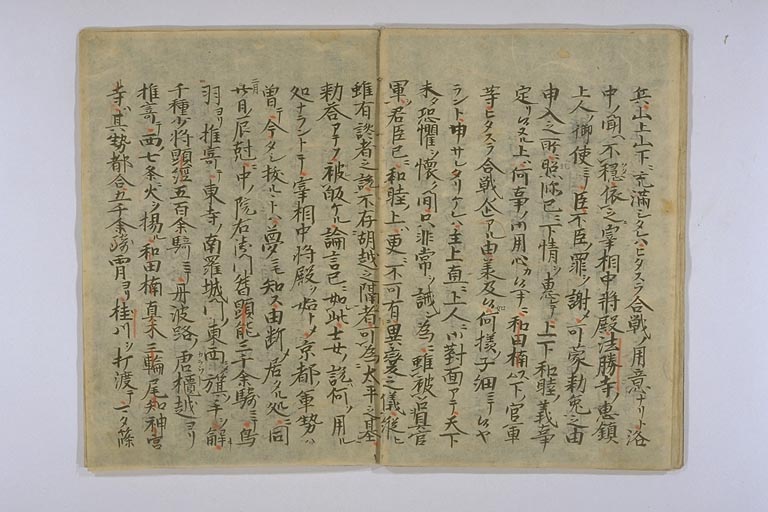 兵山上山下ニ充満シタレハヒタスラ合戦ノ用意ナリト洛
中ノ聞ヘ不穏依之宰相中将殿法勝寺ノ恵鎮
上人ヲ御使ニテ臣不臣ノ罪ヲ謝メ可蒙勅免之由
申入之所ニ照
已ニ下情ヲ恵テ上下和睦ノ義事
定リヌル上ハ何事ノ用心カ
和田楠以下ノ官軍
等ヒタスラ合戦ノ企アル由承及候何様ノ子細ニテ候ヤ
ラント申サレタリケレハ主上直ニ上人ニ御対面アテ天下
未タ恐懼ヲ懐ク間只非常ヲ誡ン為ニ雖被召置官
軍ヲ君臣已ニ和睦上ハ更ニ不可有異変之儀縦ヒ
雖有説者之説不存胡越之隔者可為太平之基
勅答アテ
被
ケル論言已ニ如此士女ノ説何ノ用ル
処ナラントテ宰相中将殿ヲ始トメ京都ノ軍勢ハ
曾テ今タ
トハ夢ニモ知ス由断メ居タル処ニ同
二月
廿日ノ辰尅ニ中ノ院右衛門督顕能三千余騎ニテ鳥
羽ヨリ推寄テ東寺ノ南羅城門ノ東西ニメ旗ノ手ヲ解
千種少将顕経五百余騎ニテ丹波路唐櫃越ヨリ
推寄テ西七条ニ火ヲ揚ル和田楠真木三輪尾知神宮
寺ノ其勢都合五千余騎宵ヨリ桂川ヲ打渡テマタ篠